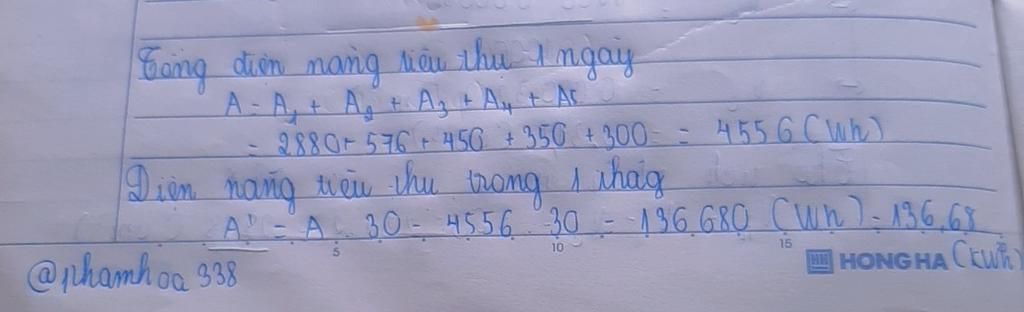 Tổng điện năng tiêu thụ 1 ngày
A = A₁ + A₂ + A₃ + A₄ + A₅
= 2880 + 576 + 450 + 350 + 300 = 4556 (Wh)
Điện năng tiêu thụ trong 1 thág
A' = A . 30 = 4556 . 30 = 136 680 (Wh) = 136,68
5 10 15 20
HH HONG HA (kWh)
@phamhoa338